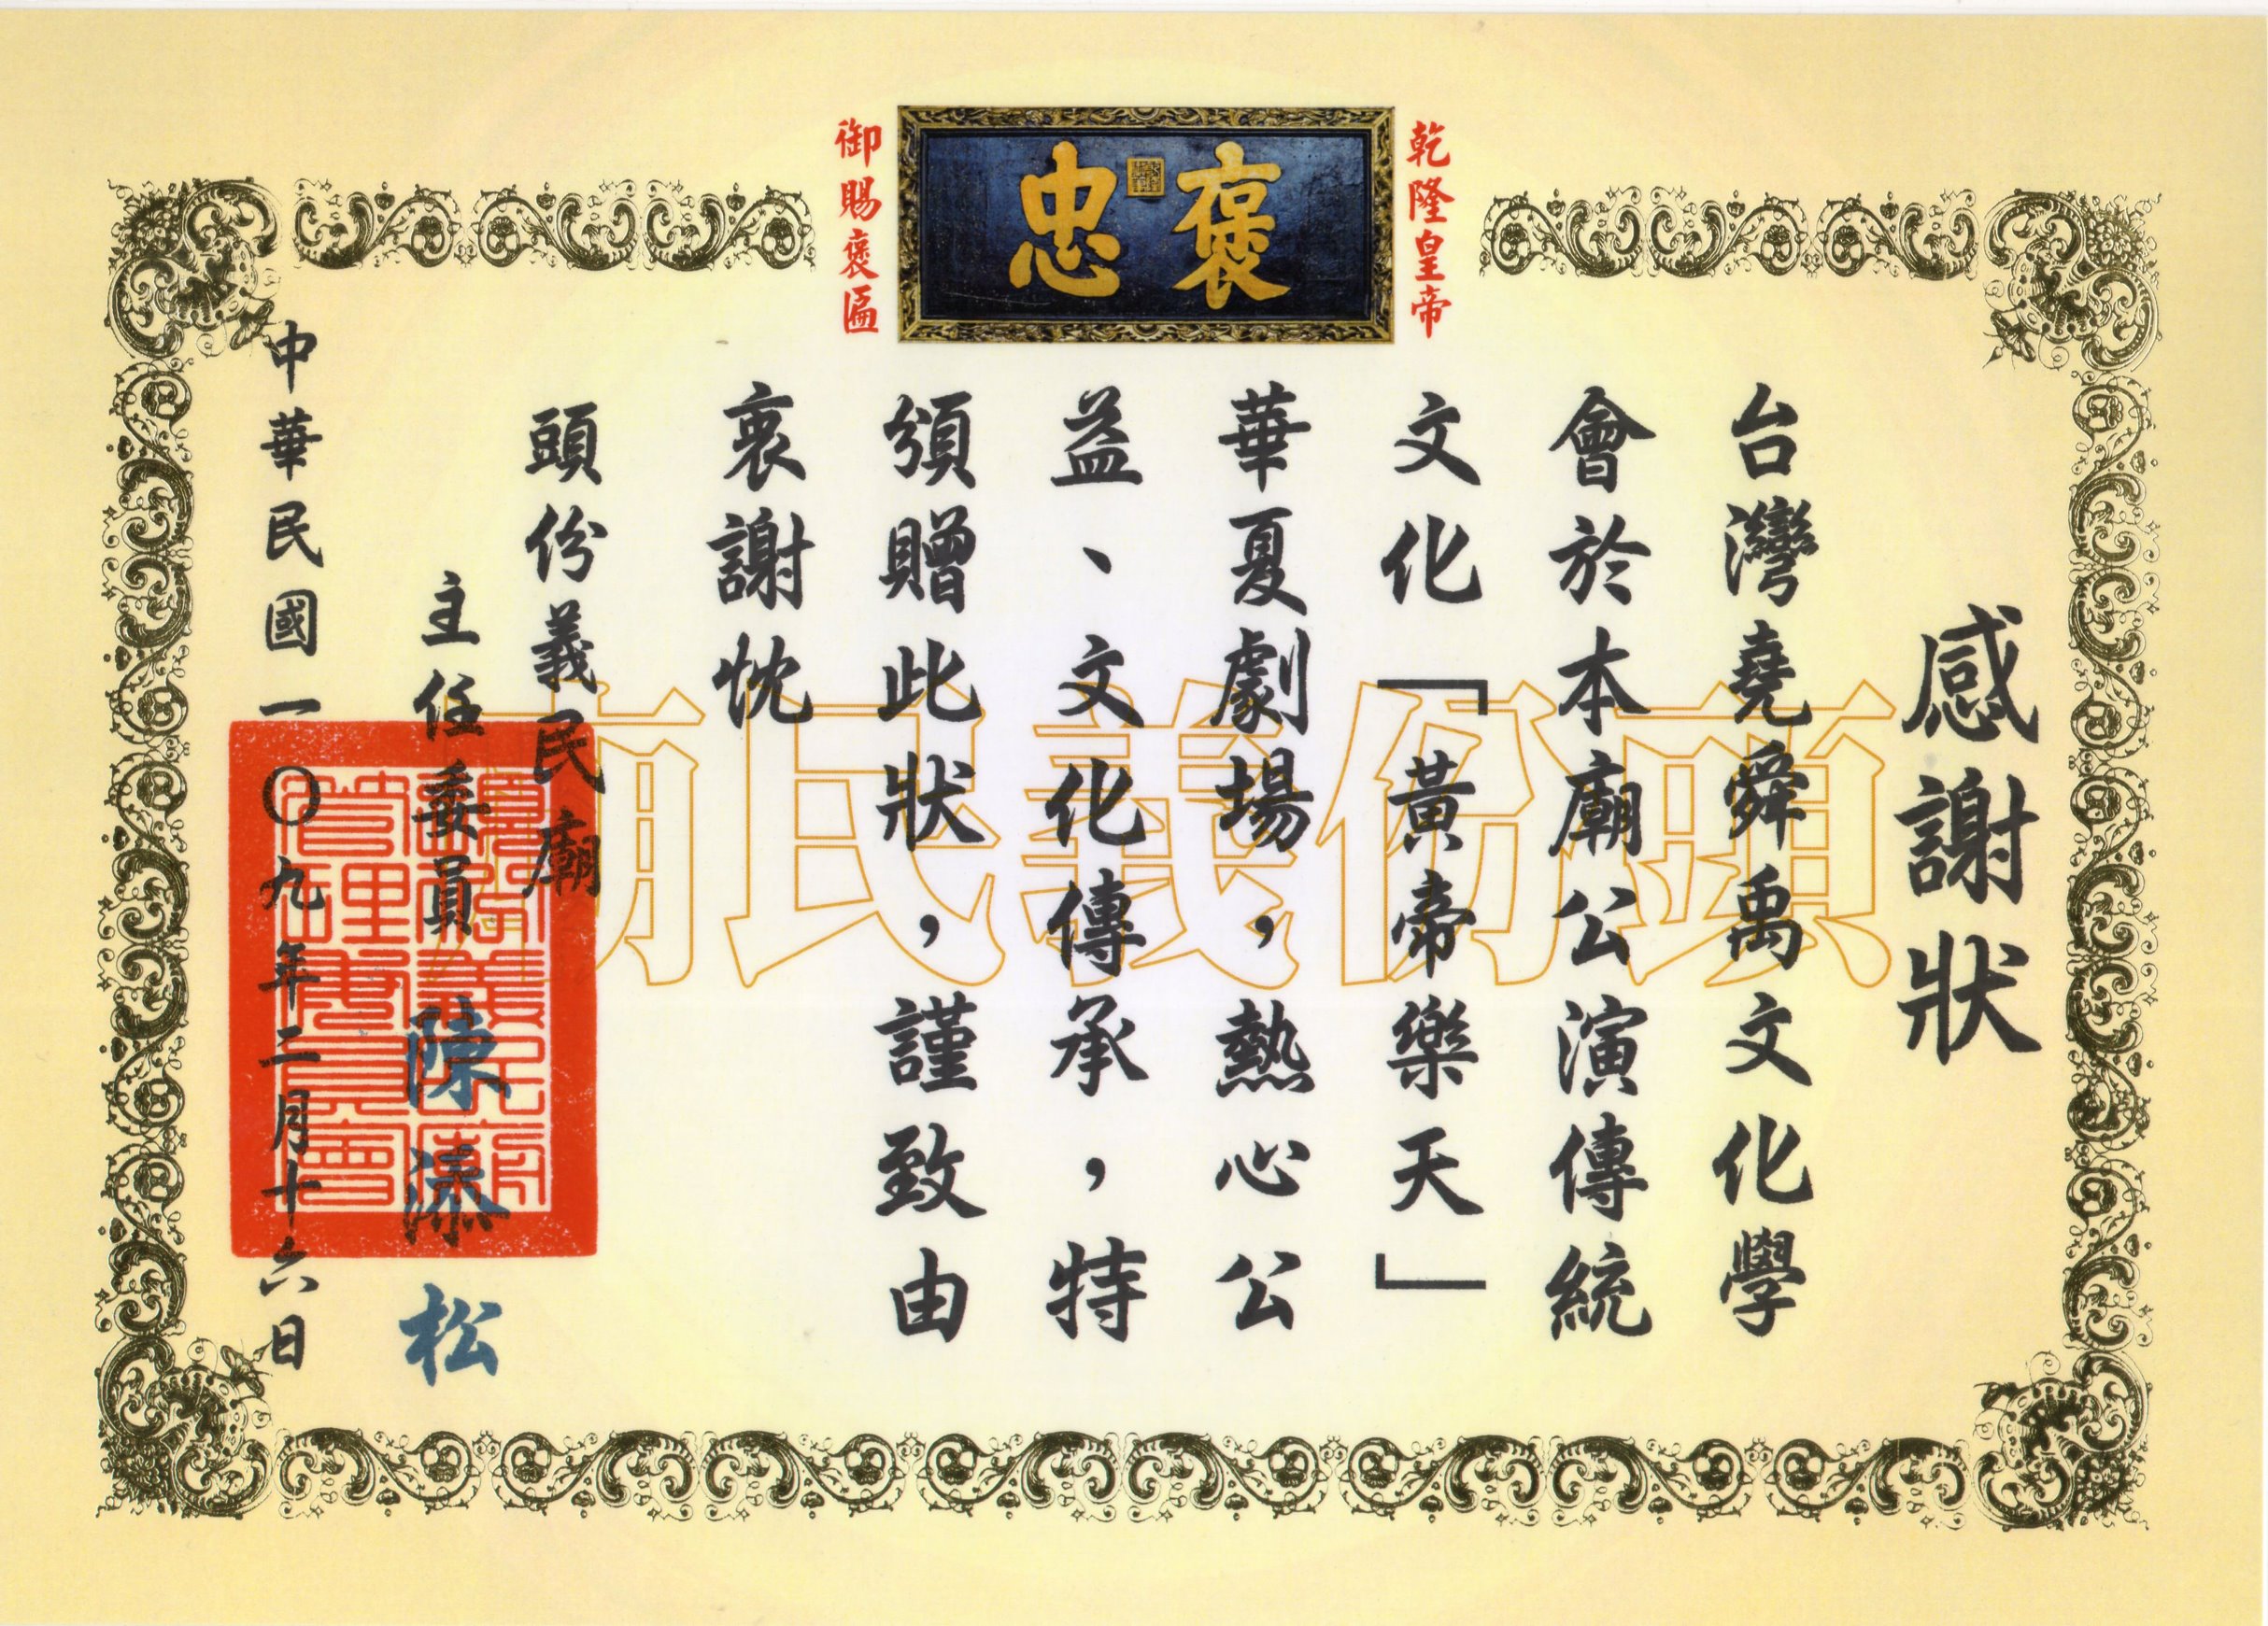 乾隆皇帝
褒忠
御賜褒匾
感謝狀
台灣堯舜禹文化學
會於本廟公演傳統
文化「黃帝樂天」
華夏劇場，熱心公
益、文化傳承，特
頒贈此狀，謹致由
衷謝忱
頭份義民廟
主任委員 陳添松
中華民國一〇九年二月十六日
頭份義民廟
頭份義民廟
管理委員會